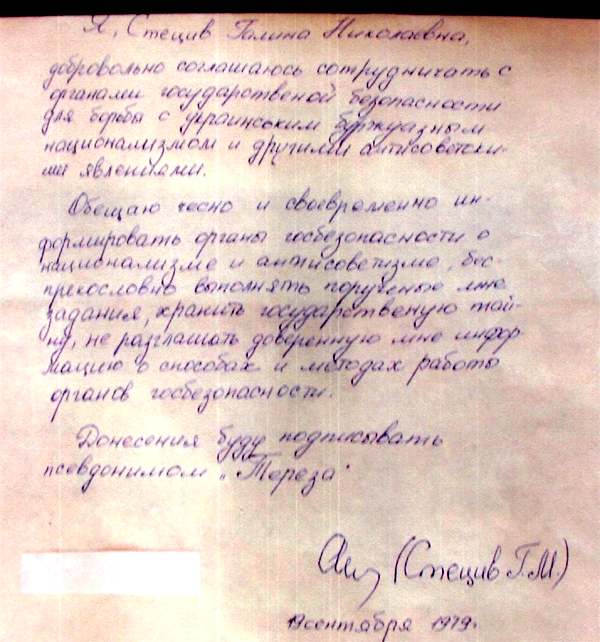 Я, Стецив Галина Николаевна,
добровольно соглашаюсь сотрудничать с
органами государственой безопасности
для борьбы с украинским буржуазным
национализмом и другими антисоветски-
ми явлениями.
Обещаю чесно и своевременно ин-
формировать органы госбезопасности о
национализме и антисоветизме, бес-
прекословно выполнять порученые мне
задания, хранить государственую тай-
ну, не разглашать доверенную мне инфор
мацию о способах и методах работы
органов госбезопасности.
Донесения буду подписывать
псевдонимом „Тереза"
(Стецив Г.М.)
сентября 1979.